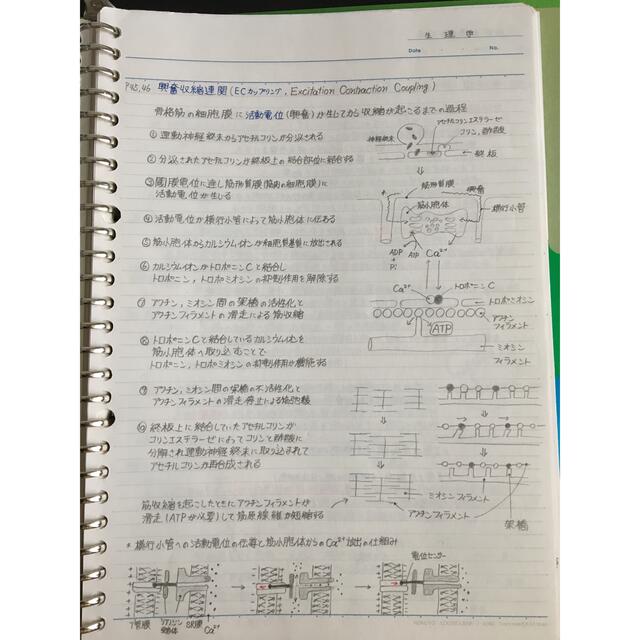 生理学
Date No.
P45,46 興奮収縮連関(ECカップリング, Excitation Contraction Coupling)
骨格筋の細胞膜に活動電位(興奮)が生じてから収縮が起こるまでの過程
① 運動神経終末からアセチルコリンが分泌される
② 分泌されたアセチルコリンが終板上の結合部位に結合する
③ 閾膜電位に達し筋形質膜(筋肉の細胞膜)に
活動電位が生じる
④ 活動電位が横行小管によって筋小胞体に伝わる
⑤ 筋小胞体からカルシウムイオンが細胞質基質に放出される
⑥ カルシウムイオンがトロポニンCと結合し
トロポニン,トロポミオシンの抑制作用を解除する
⑦ アクチン,ミオシン間の架橋の活性化と
アクチンフィラメントの滑走による筋収縮
⑧ トロポニンCと結合しているカルシウムイオンを
筋小胞体へ取り込むことで
トロポニン,トロポミオシンの抑制作用が機能する
⑨ アクチン,ミオシン間の架橋の不活性化と
アクチンフィラメントの滑走停止による筋弛緩
⑩ 終板上に結合していたアセチルコリンが
コリンエステラーゼによってコリンと酢酸に
分解され運動神経終末に取り込まれて
アセチルコリンが再合成される
筋収縮を起こしたときにアクチンフィラメントが
滑走(ATPが必要)して筋原線維が短縮する
アセチルコリンエステラーゼ
コリン,酢酸
神経終末
終板
筋形質膜
興奮
筋小胞体
横行小管
ADP
+
Pi
ATP
Ca²⁺
Ca²⁺
トロポニンC
トロポミオシン
アクチン
フィラメント
ATP
ミオシン
フィラメント
ミオシンフィラメント
アクチンフィラメント
架橋
* 横行小管への活動電位の伝導と筋小胞体からのCa²⁺放出の仕組み
電位センサー
T管膜
SR膜
Ca²⁺